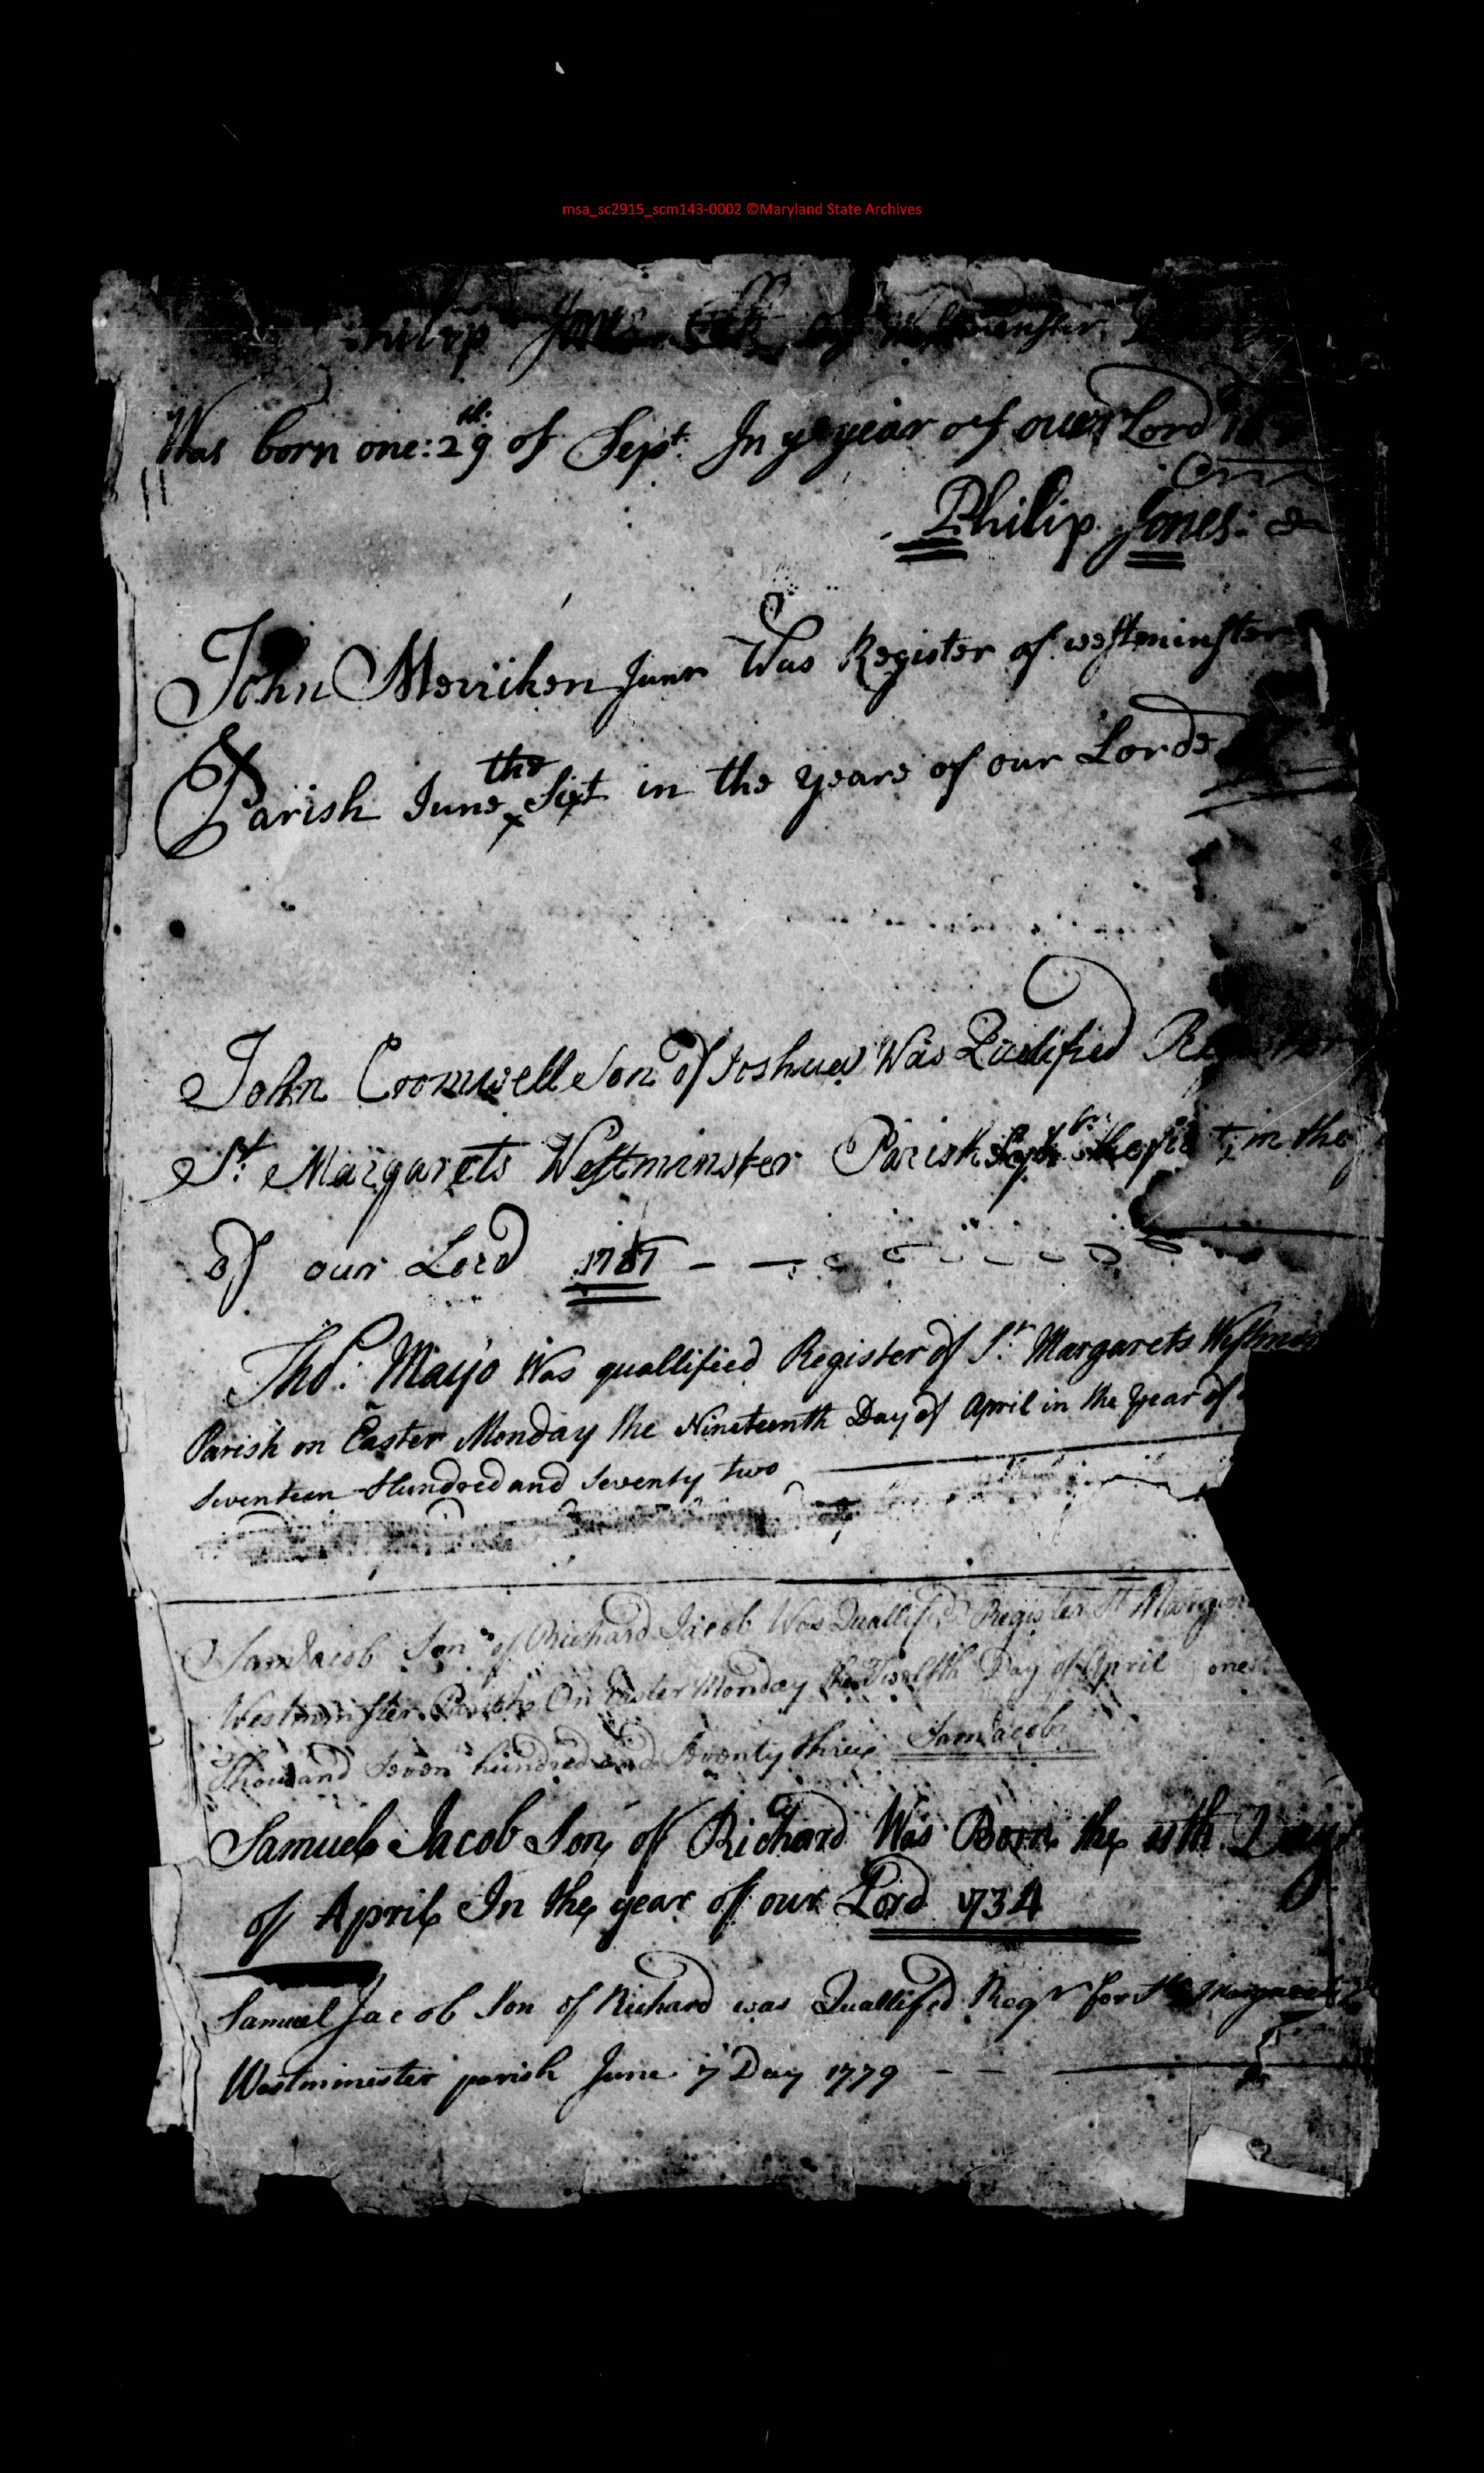 msa_sc2915_scm143-0002 ©Maryland State Archives
Philip Jones of Westminster
Was born one: 29th. of Sept. In ye year of ouer Lord
Philip Jones:
John Merriken Junr Was Register of westminster
Parish June the Sixt in the yeare of our Lorde
John Cromwell Son of Joshua Was Qualified Register
St. Margarets Westminster Parish in the
of our Lord
Thos. Mayo Was quallified Register of St. Margarets Westmin
Parish on Easter Monday the Nineteenth Day of April in the Year of
Seventeen Hundred and Seventy two
Sam Jacob Son of Richard Jacob Was Quallified Register St Margar
Westminster Parish On Easter Monday the Twelfth Day of April one
Thousand Seven hundred and Seventy three Sam Jacob
Samuel Jacob Son of Richard Was Born the 11th Day
of April In the year of our Lord 1734
Samuel Jacob Son of Richard was Quallified Regr for St Margarets
Westminester parish June 7 Day 1779